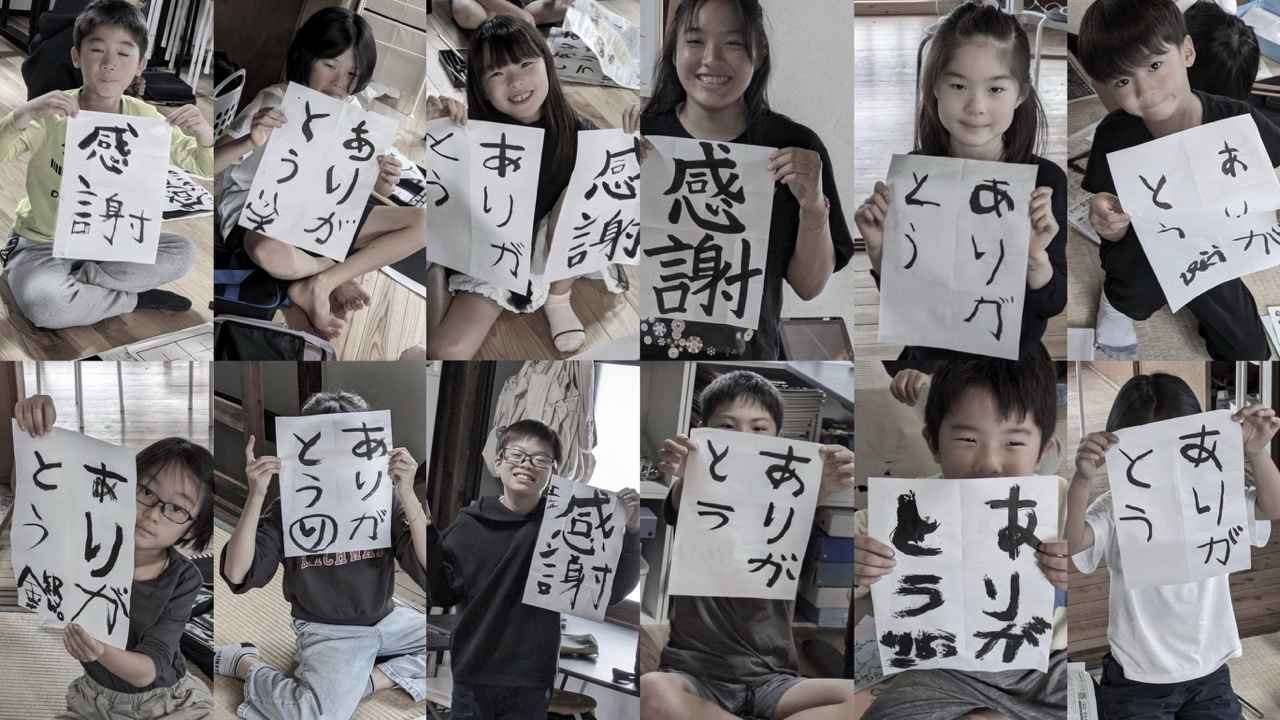 感謝
ありが
とう
ありが
とう
感謝
感謝
ありが
とう
ありが
とう
ありが
とう
ありが
とう
感謝
ありが
とう
ありが
とう
ありが
とう